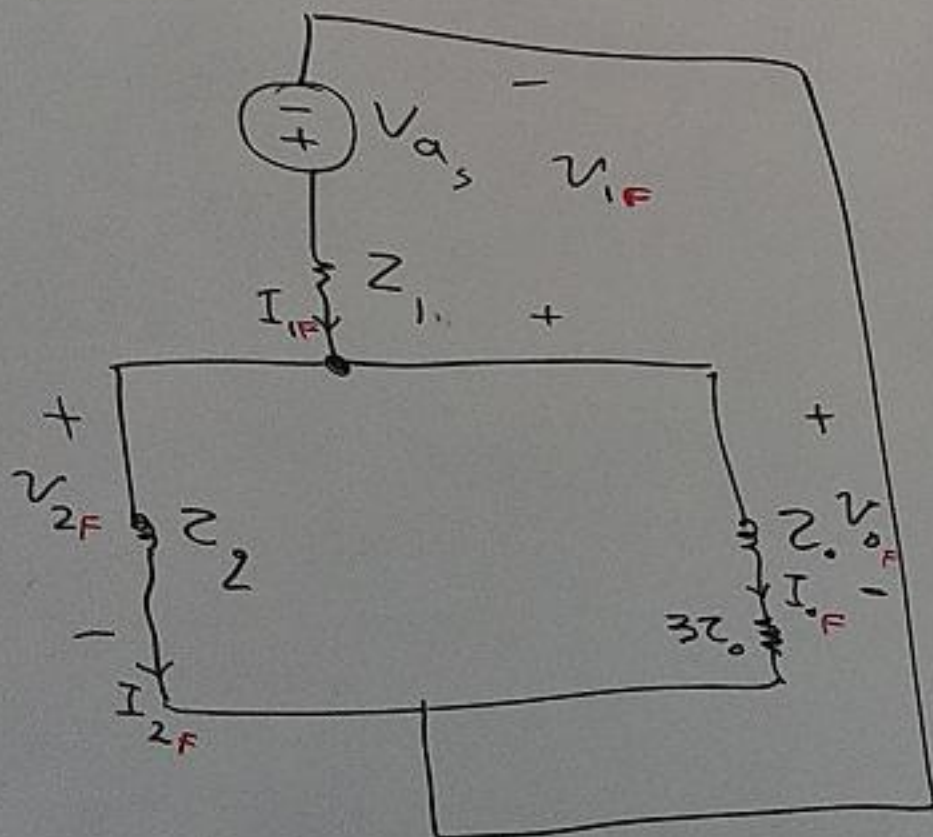 −
− +
Vas
V1F
Z1
I1F
+
+
V2F
−
Z2
I2F
+
Z0
V0F
I0F
−
3Z0